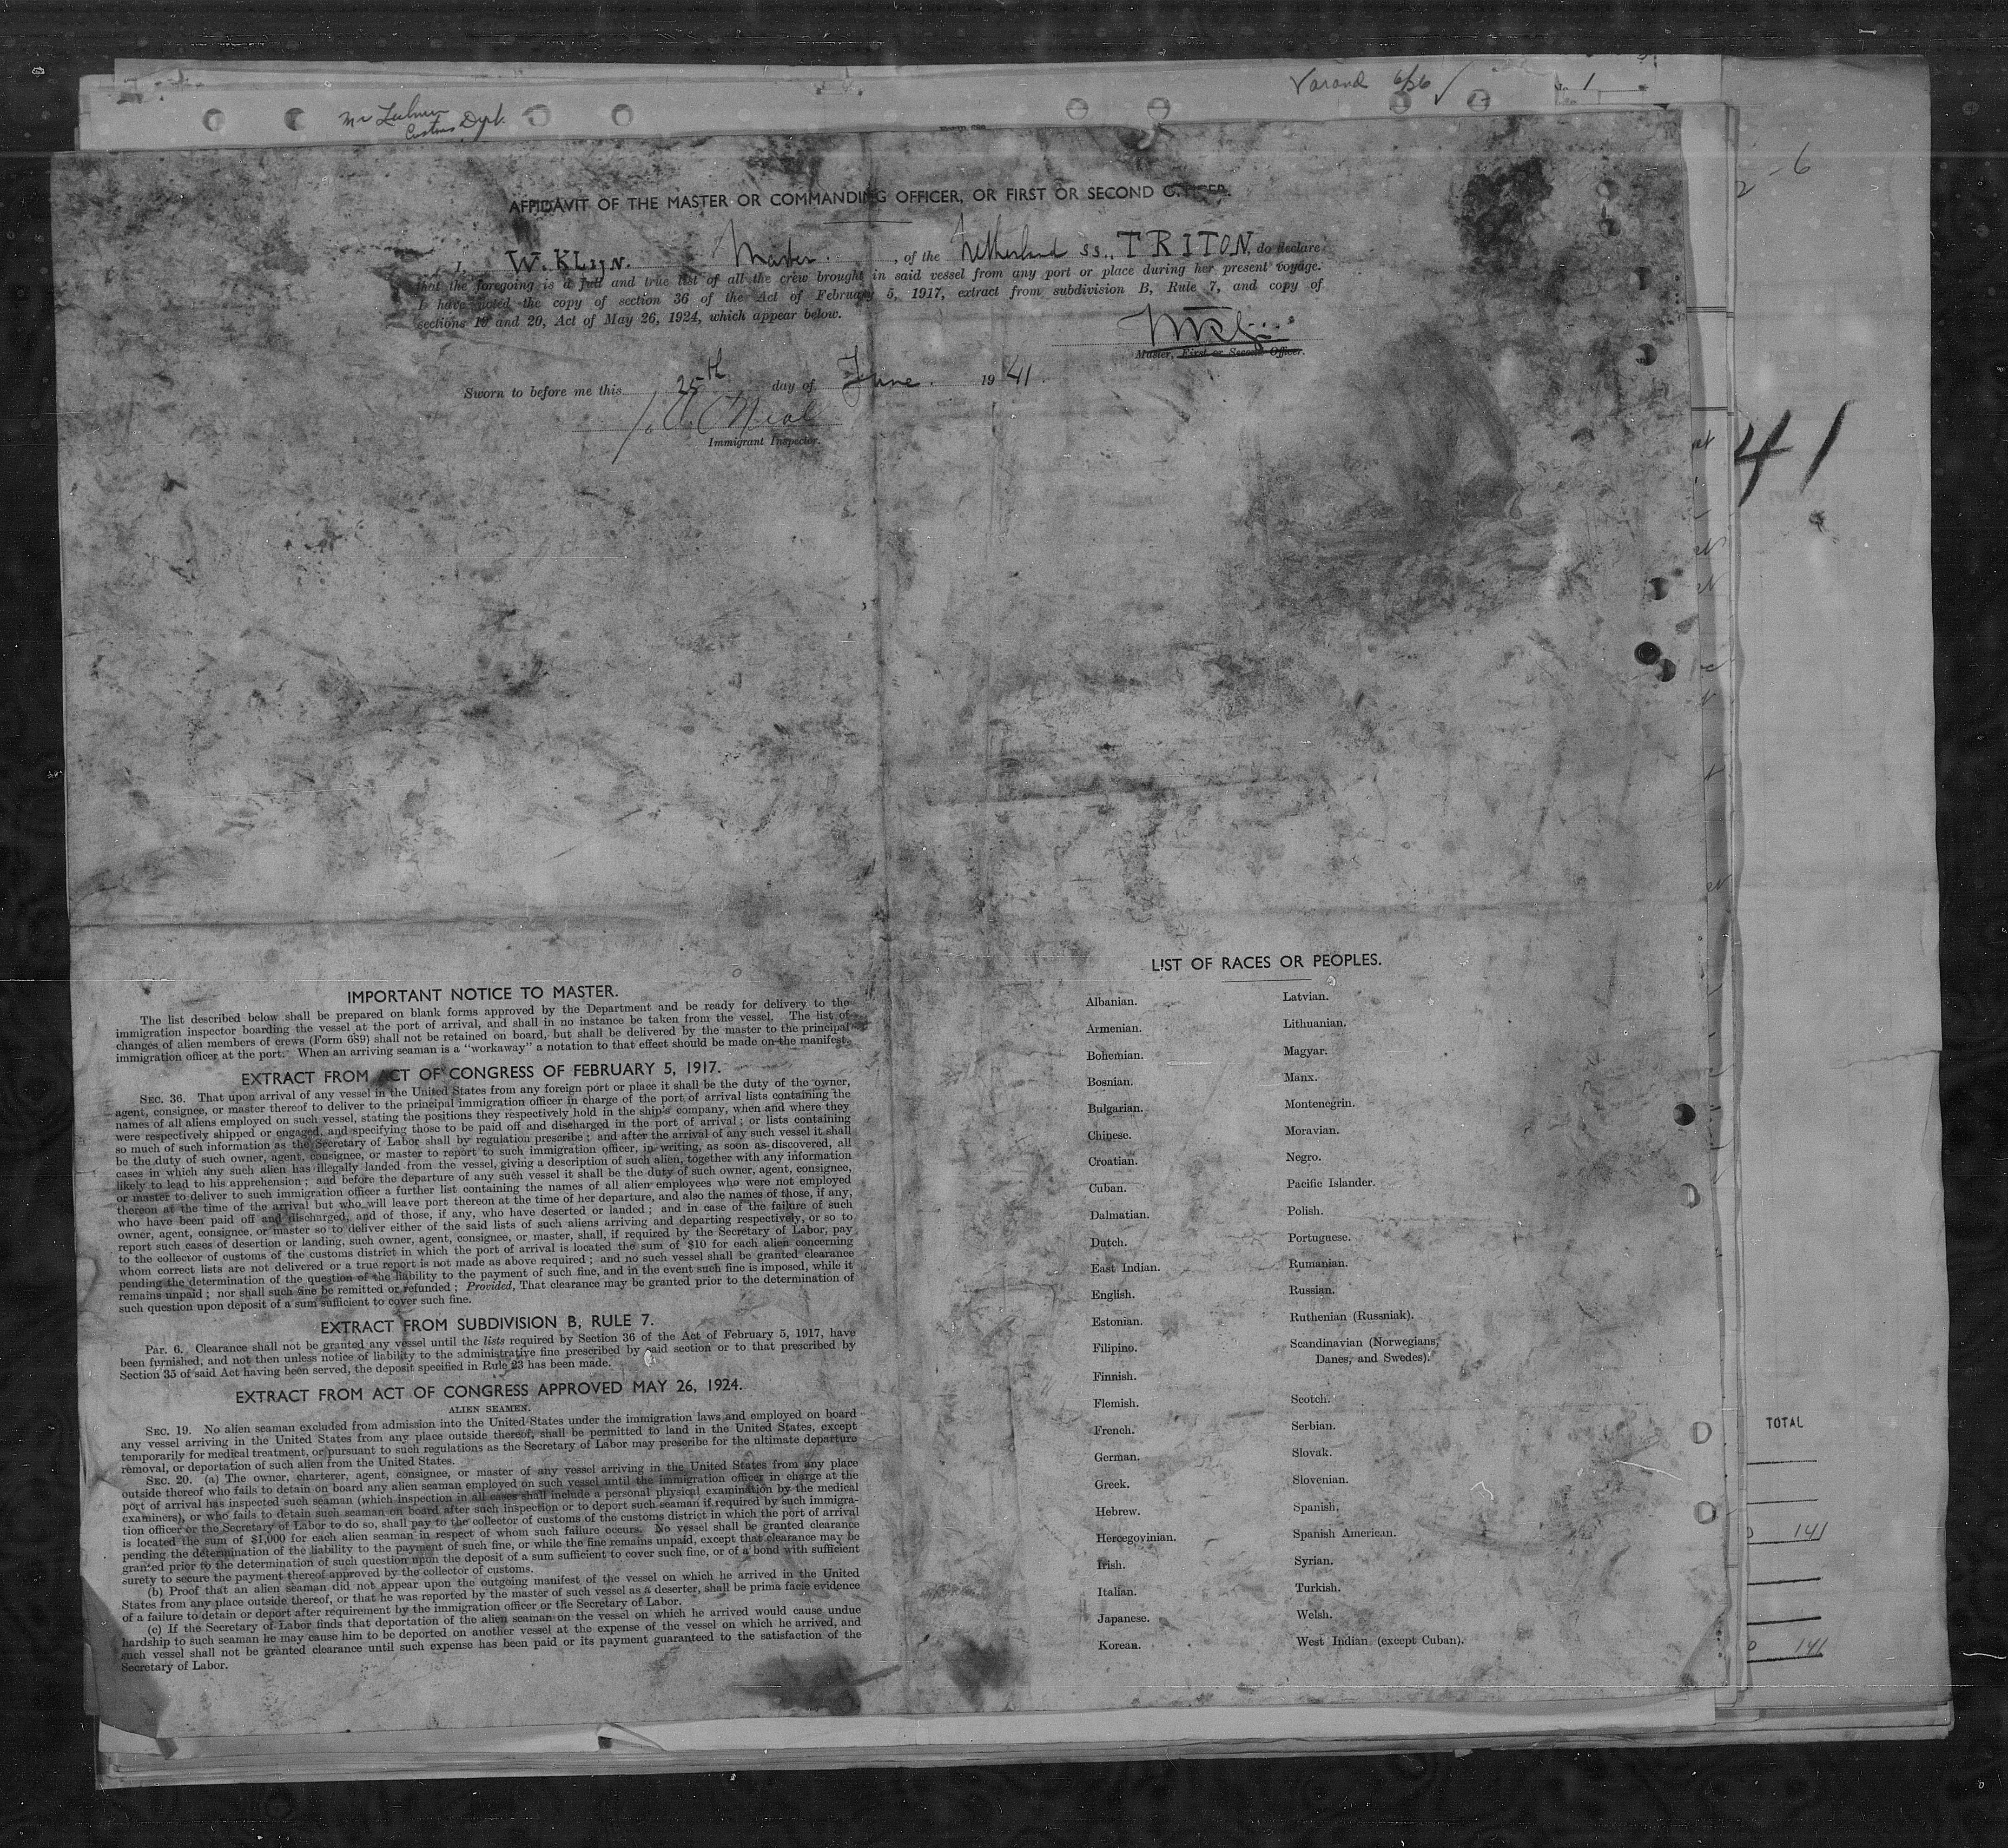 Customs Dept.
6/26
1
AFFIDAVIT OF THE MASTER OR COMMANDING OFFICER, OR FIRST OR SECOND OFFICER.
I, W. KLYN. Master. , of the Netherland ss., TRITON, do declare
that the foregoing is a full and true list of all the crew brought in said vessel from any port or place during her present voyage.
I have noted the copy of section 36 of the Act of February 5, 1917, extract from subdivision B, Rule 7, and copy of
sections 19 and 20, Act of May 26, 1924, which appear below.
Master, First or Second Officer.
Sworn to before me this 25th day of June. 19 41.
Immigrant Inspector.
2-6
41
IMPORTANT NOTICE TO MASTER.
The list described below shall be prepared on blank forms approved by the Department and be ready for delivery to the
immigration inspector boarding the vessel at the port of arrival, and shall in no instance be taken from the vessel. The list of
changes of alien members of crews (Form 689) shall not be retained on board, but shall be delivered by the master to the principal
immigration officer at the port. When an arriving seaman is a "workaway" a notation to that effect should be made on the manifest.
EXTRACT FROM ACT OF CONGRESS OF FEBRUARY 5, 1917.
SEC. 36. That upon arrival of any vessel in the United States from any foreign port or place it shall be the duty of the owner,
agent, consignee, or master thereof to deliver to the principal immigration officer in charge of the port of arrival lists containing the
names of all aliens employed on such vessel, stating the positions they respectively hold in the ship's company, when and where they
were respectively shipped or engaged, and specifying those to be paid off and discharged in the port of arrival; or lists containing
so much of such information as the Secretary of Labor shall by regulation prescribe; and after the arrival of any such vessel it shall
be the duty of such owner, agent, consignee, or master to report to such immigration officer, in writing, as soon as discovered, all
cases in which any such alien has illegally landed from the vessel, giving a description of such alien, together with any information
likely to lead to his apprehension; and before the departure of any such vessel it shall be the duty of such owner, agent, consignee,
or master to deliver to such immigration officer a further list containing the names of all alien employees who were not employed
thereon at the time of the arrival but who will leave port thereon at the time of her departure, and also the names of those, if any,
who have been paid off and discharged, and of those, if any, who have deserted or landed; and in case of the failure of such
owner, agent, consignee, or master so to deliver either of the said lists of such aliens arriving and departing respectively, or so to
report such cases of desertion or landing, such owner, agent, consignee, or master, shall, if required by the Secretary of Labor, pay
to the collector of customs of the customs district in which the port of arrival is located the sum of $10 for each alien concerning
whom correct lists are not delivered or a true report is not made as above required; and no such vessel shall be granted clearance
pending the determination of the question of the liability to the payment of such fine, and in the event such fine is imposed, while it
remains unpaid; nor shall such fine be remitted or refunded; Provided, That clearance may be granted prior to the determination of
such question upon deposit of a sum sufficient to cover such fine.
EXTRACT FROM SUBDIVISION B, RULE 7.
PAR. 6. Clearance shall not be granted any vessel until the lists required by Section 36 of the Act of February 5, 1917, have
been furnished, and not then unless notice of liability to the administrative fine prescribed by said section or to that prescribed by
Section 35 of said Act having been served, the deposit specified in Rule 23 has been made.
EXTRACT FROM ACT OF CONGRESS APPROVED MAY 26, 1924.
ALIEN SEAMEN.
SEC. 19. No alien seaman excluded from admission into the United States under the immigration laws and employed on board
any vessel arriving in the United States from any place outside thereof, shall be permitted to land in the United States, except
temporarily for medical treatment, or pursuant to such regulations as the Secretary of Labor may prescribe for the ultimate departure
removal, or deportation of such alien from the United States.
SEC. 20. (a) The owner, charterer, agent, consignee, or master of any vessel arriving in the United States from any place
outside thereof who fails to detain on board any alien seaman employed on such vessel until the immigration officer in charge at the
port of arrival has inspected such seaman (which inspection in all cases shall include a personal physical examination by the medical
examiners), or who fails to detain such seaman on board after such inspection or to deport such seaman if required by such immigra-
tion officer or the Secretary of Labor to do so, shall pay to the collector of customs of the customs district in which the port of arrival
is located the sum of $1,000 for each alien seaman in respect of whom such failure occurs. No vessel shall be granted clearance
pending the determination of the liability to the payment of such fine, or while the fine remains unpaid, except that clearance may be
granted prior to the determination of such question upon the deposit of a sum sufficient to cover such fine, or of a bond with sufficient
surety to secure the payment thereof approved by the collector of customs.
(b) Proof that an alien seaman did not appear upon the outgoing manifest of the vessel on which he arrived in the United
States from any place outside thereof, or that he was reported by the master of such vessel as a deserter, shall be prima facie evidence
of a failure to detain or deport after requirement by the immigration officer or the Secretary of Labor.
(c) If the Secretary of Labor finds that deportation of the alien seaman on the vessel on which he arrived would cause undue
hardship to such seaman he may cause him to be deported on another vessel at the expense of the vessel on which he arrived, and
such vessel shall not be granted clearance until such expense has been paid or its payment guaranteed to the satisfaction of the
Secretary of Labor.
LIST OF RACES OR PEOPLES.
Albanian.
Armenian.
Bohemian.
Bosnian.
Bulgarian.
Chinese.
Croatian.
Cuban.
Dalmatian.
Dutch.
East Indian.
English.
Estonian.
Filipino.
Finnish.
Flemish.
French.
German.
Greek.
Hebrew.
Hercegovinian.
Irish.
Italian.
Japanese.
Korean.
Latvian.
Lithuanian.
Magyar.
Manx.
Montenegrin.
Moravian.
Negro.
Pacific Islander.
Polish.
Portuguese.
Rumanian.
Russian.
Ruthenian (Russniak).
Scandinavian (Norwegians,
Danes, and Swedes).
Scotch.
Serbian.
Slovak.
Slovenian.
Spanish.
Spanish American.
Syrian.
Turkish.
Welsh.
West Indian (except Cuban).
TOTAL
141
141